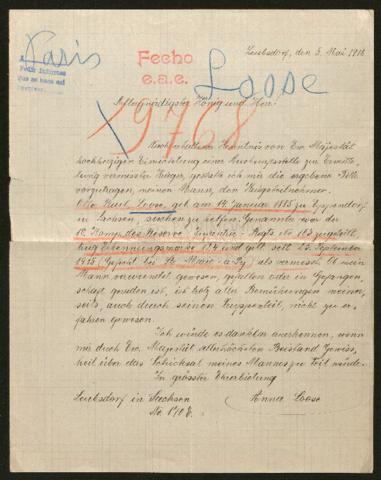 Paris
Fecho
e.a.e.
Loose
Leubsdorf, den 3. Mai 1918.
Allergnädigster König und Herr!
9768
Nach erhaltener Kenntnis von Ew. Majestät
hochherziger Einrichtung einer zu
vermisster Krieger, gestatte ich mir die ergebene Bitte
vorzutragen, meinen Mann, den Kriegsteilnehmer
Otto Paul Loose, geb. am 14. Januar 1885 zu Eppendorf
in Sachsen, suchen zu helfen. Genannter war der
10. Komp. des Reserve-Infantrie-Regts. No 133 zugeteilt,
trug Erkennungsmarke 124 und gilt seit 25. September
1915 (Gefecht bei St. Marie-a-Py) als vermisst. Ob mein
Mann verwundet gewesen, gefallen oder in Gefangen-
schaft geraten ist, ist trotz aller Bemühungen meiner-
seits, auch durch seinen Truppenteil, nicht zu er-
fahren gewesen.
Ich würde es dankbar anerkennen, wenn
mir durch Ew. Majestät allerhöchsten Beistand Gewiss-
heit über das Schicksal meines Mannes zu Teil würde.
In grösster Ehrerbietung
Leubsdorf in Sachsen
Anna Loose
No.